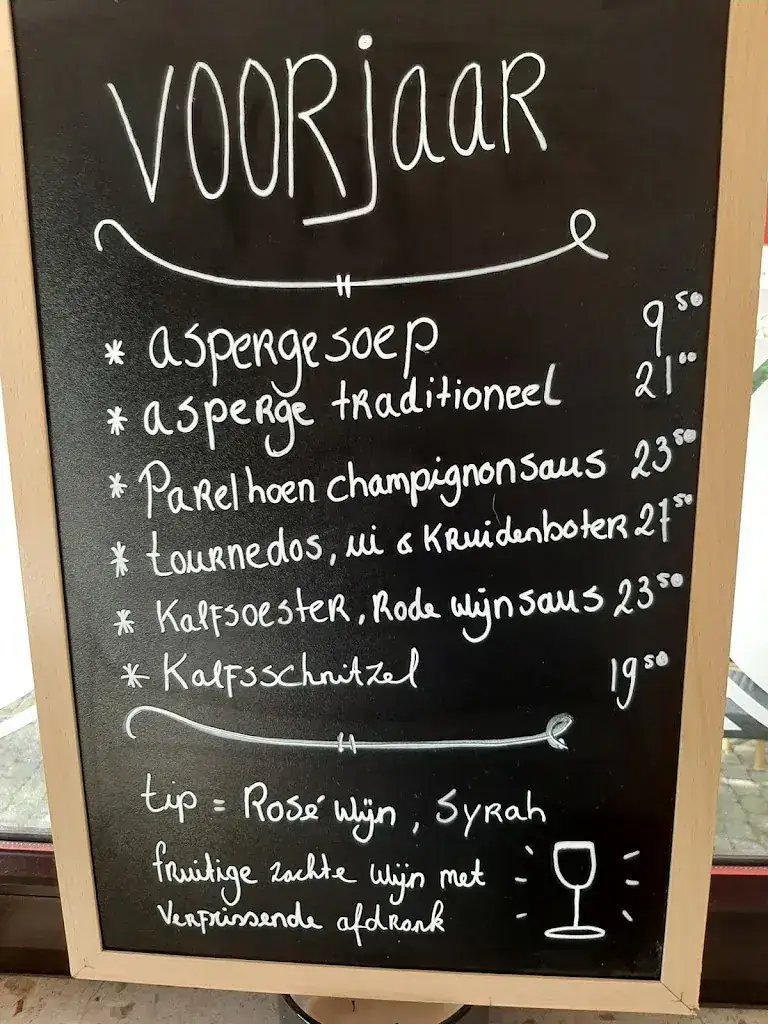 VOORjaaR
* aspeRgesoep 9 50
* aspeRge tRaditioneel 21 00
* PaRelhoen champignonsaus 23 50
* touRnedos, ui & KRuidenboteR 27 50
* KalfsoesteR, Rode wijnsaus 23 50
* Kalfsschnitzel 19 50
tip = Rosé wijn, SyRah
fRuitige zachte wijn met
VeRfRissende afdRonk